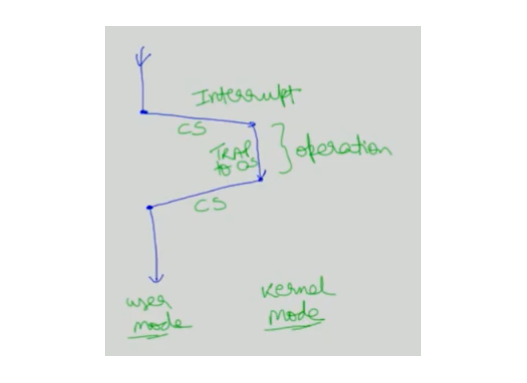 Interrupt
CS
TRAP
to OS
operation
CS
user
mode
kernel
mode